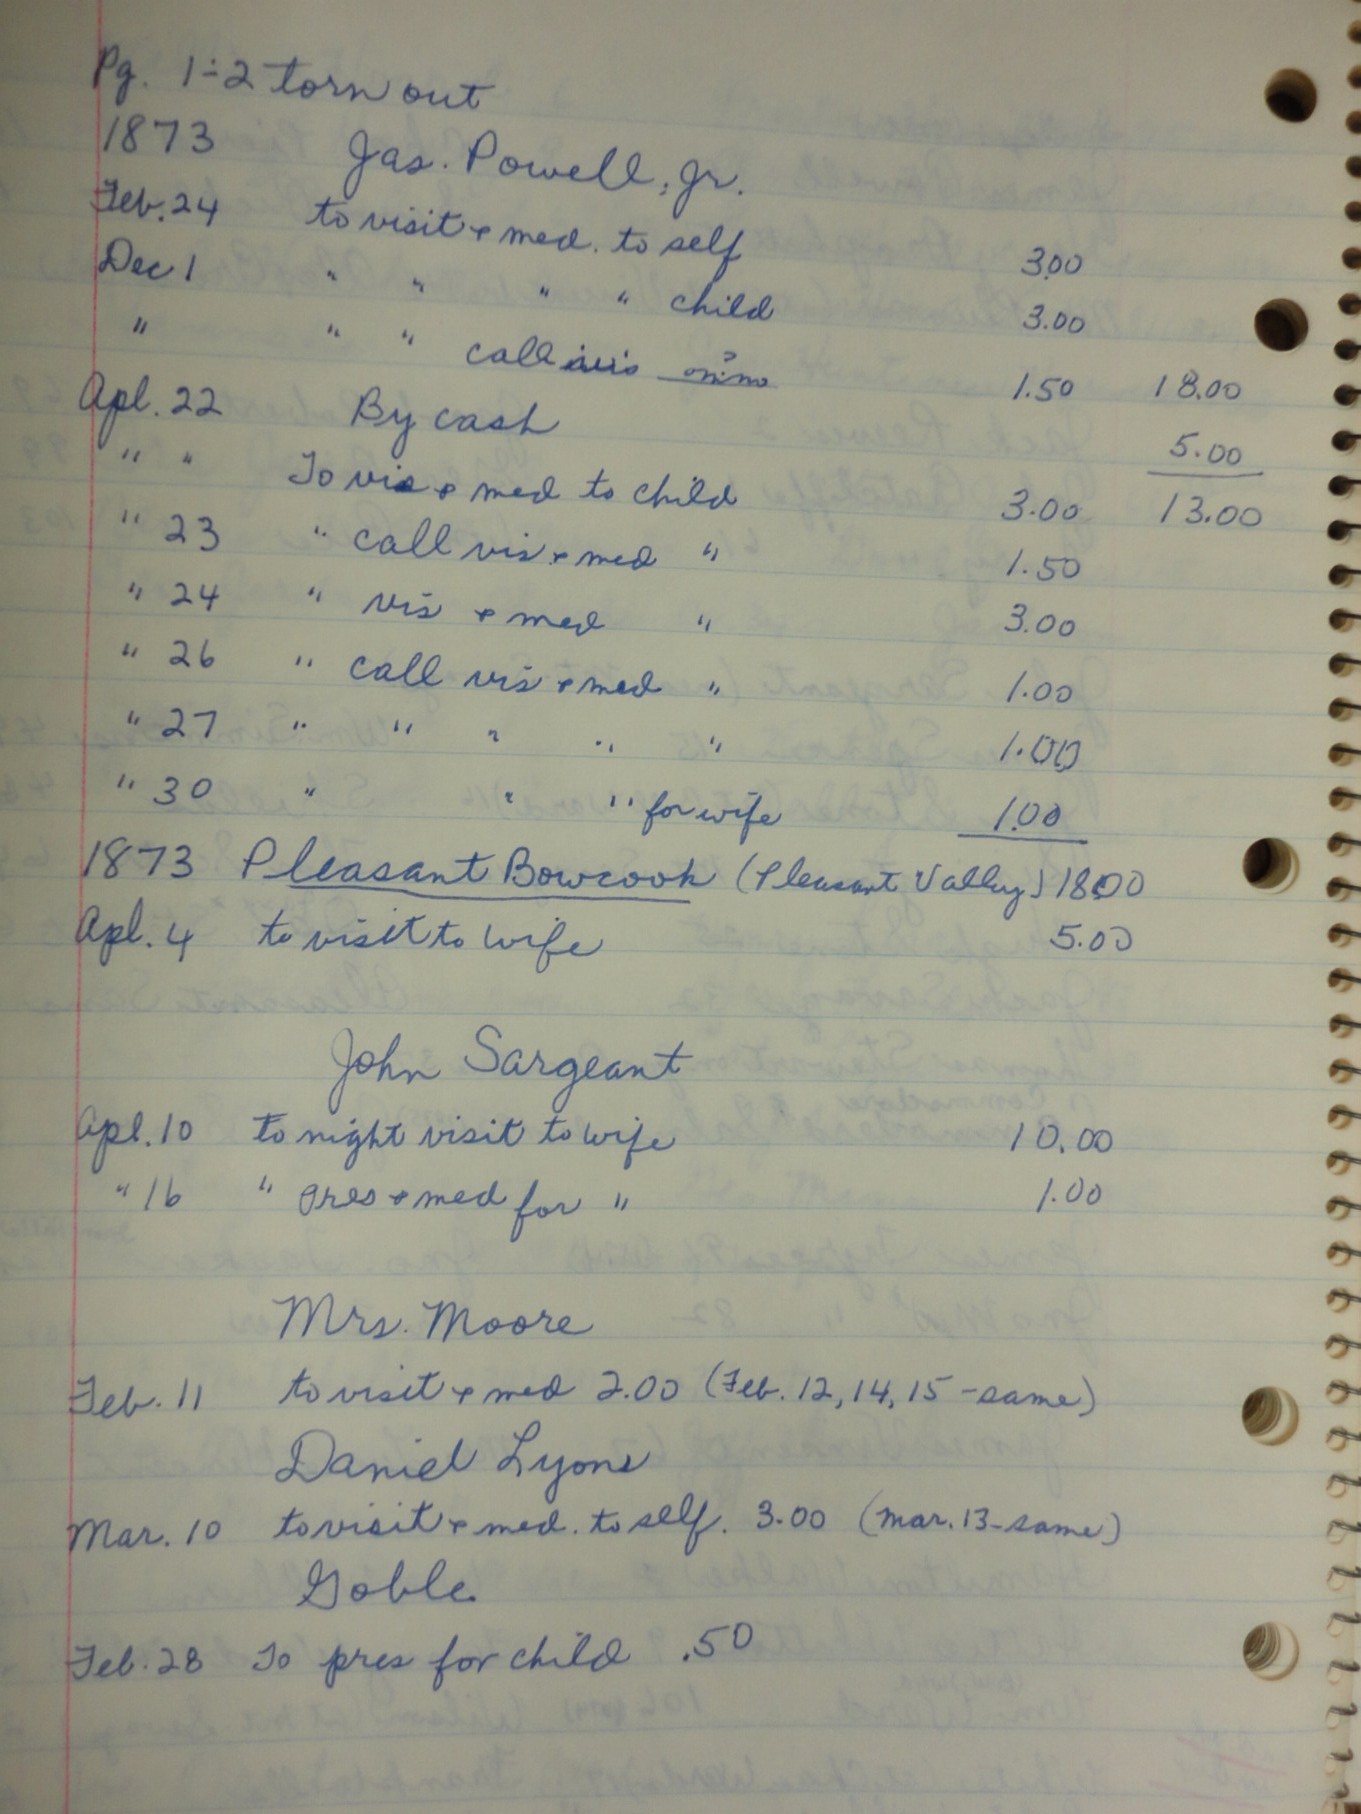 Pg. 1-2 torn out
1873 Jas. Powell, Jr.
Feb. 24 to visit + med. to self 3.00
Dec 1 " " " " child 3.00
" " " call 1.50 18.00
Apl. 22 By cash 5.00
" " To vis + med to child 3.00 13.00
" 23 " call vis + med " 1.50
" 24 " vis + med " 3.00
" 26 " call vis + med " 1.00
" 27 " " " " " 1.00
" 30 " " " for wife 1.00
1873 Pleasant Bowcook (Pleasant Valley) 18.00
Apl. 4 to visit to wife 5.00
John Sargeant
Apl. 10 to night visit to wife 10.00
" 16 " pres + med for " 1.00
Mrs. Moore
Feb. 11 to visit + med 2.00 (Feb. 12, 14, 15 - same)
Daniel Lyons
Mar. 10 to visit + med. to self. 3.00 (Mar. 13 - same)
Goble
Feb. 28 To pres for child .50